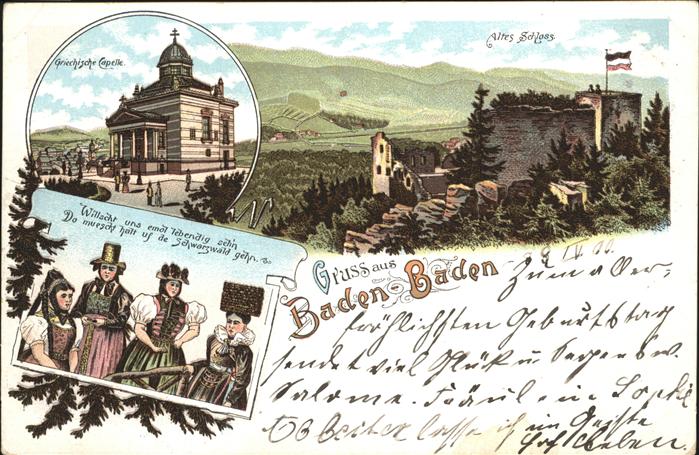 Griechische Capelle.
Altes Schloss.
Willscht uns emol lebendig sehn
Do muescht halt uf de Schwarzwald gehn.
Gruss aus
Baden-Baden
9 IV 00
Zum aller-
fröhlichsten Geburtstag
sendet viel Glück u Segensw.
Salome.
im Geiste